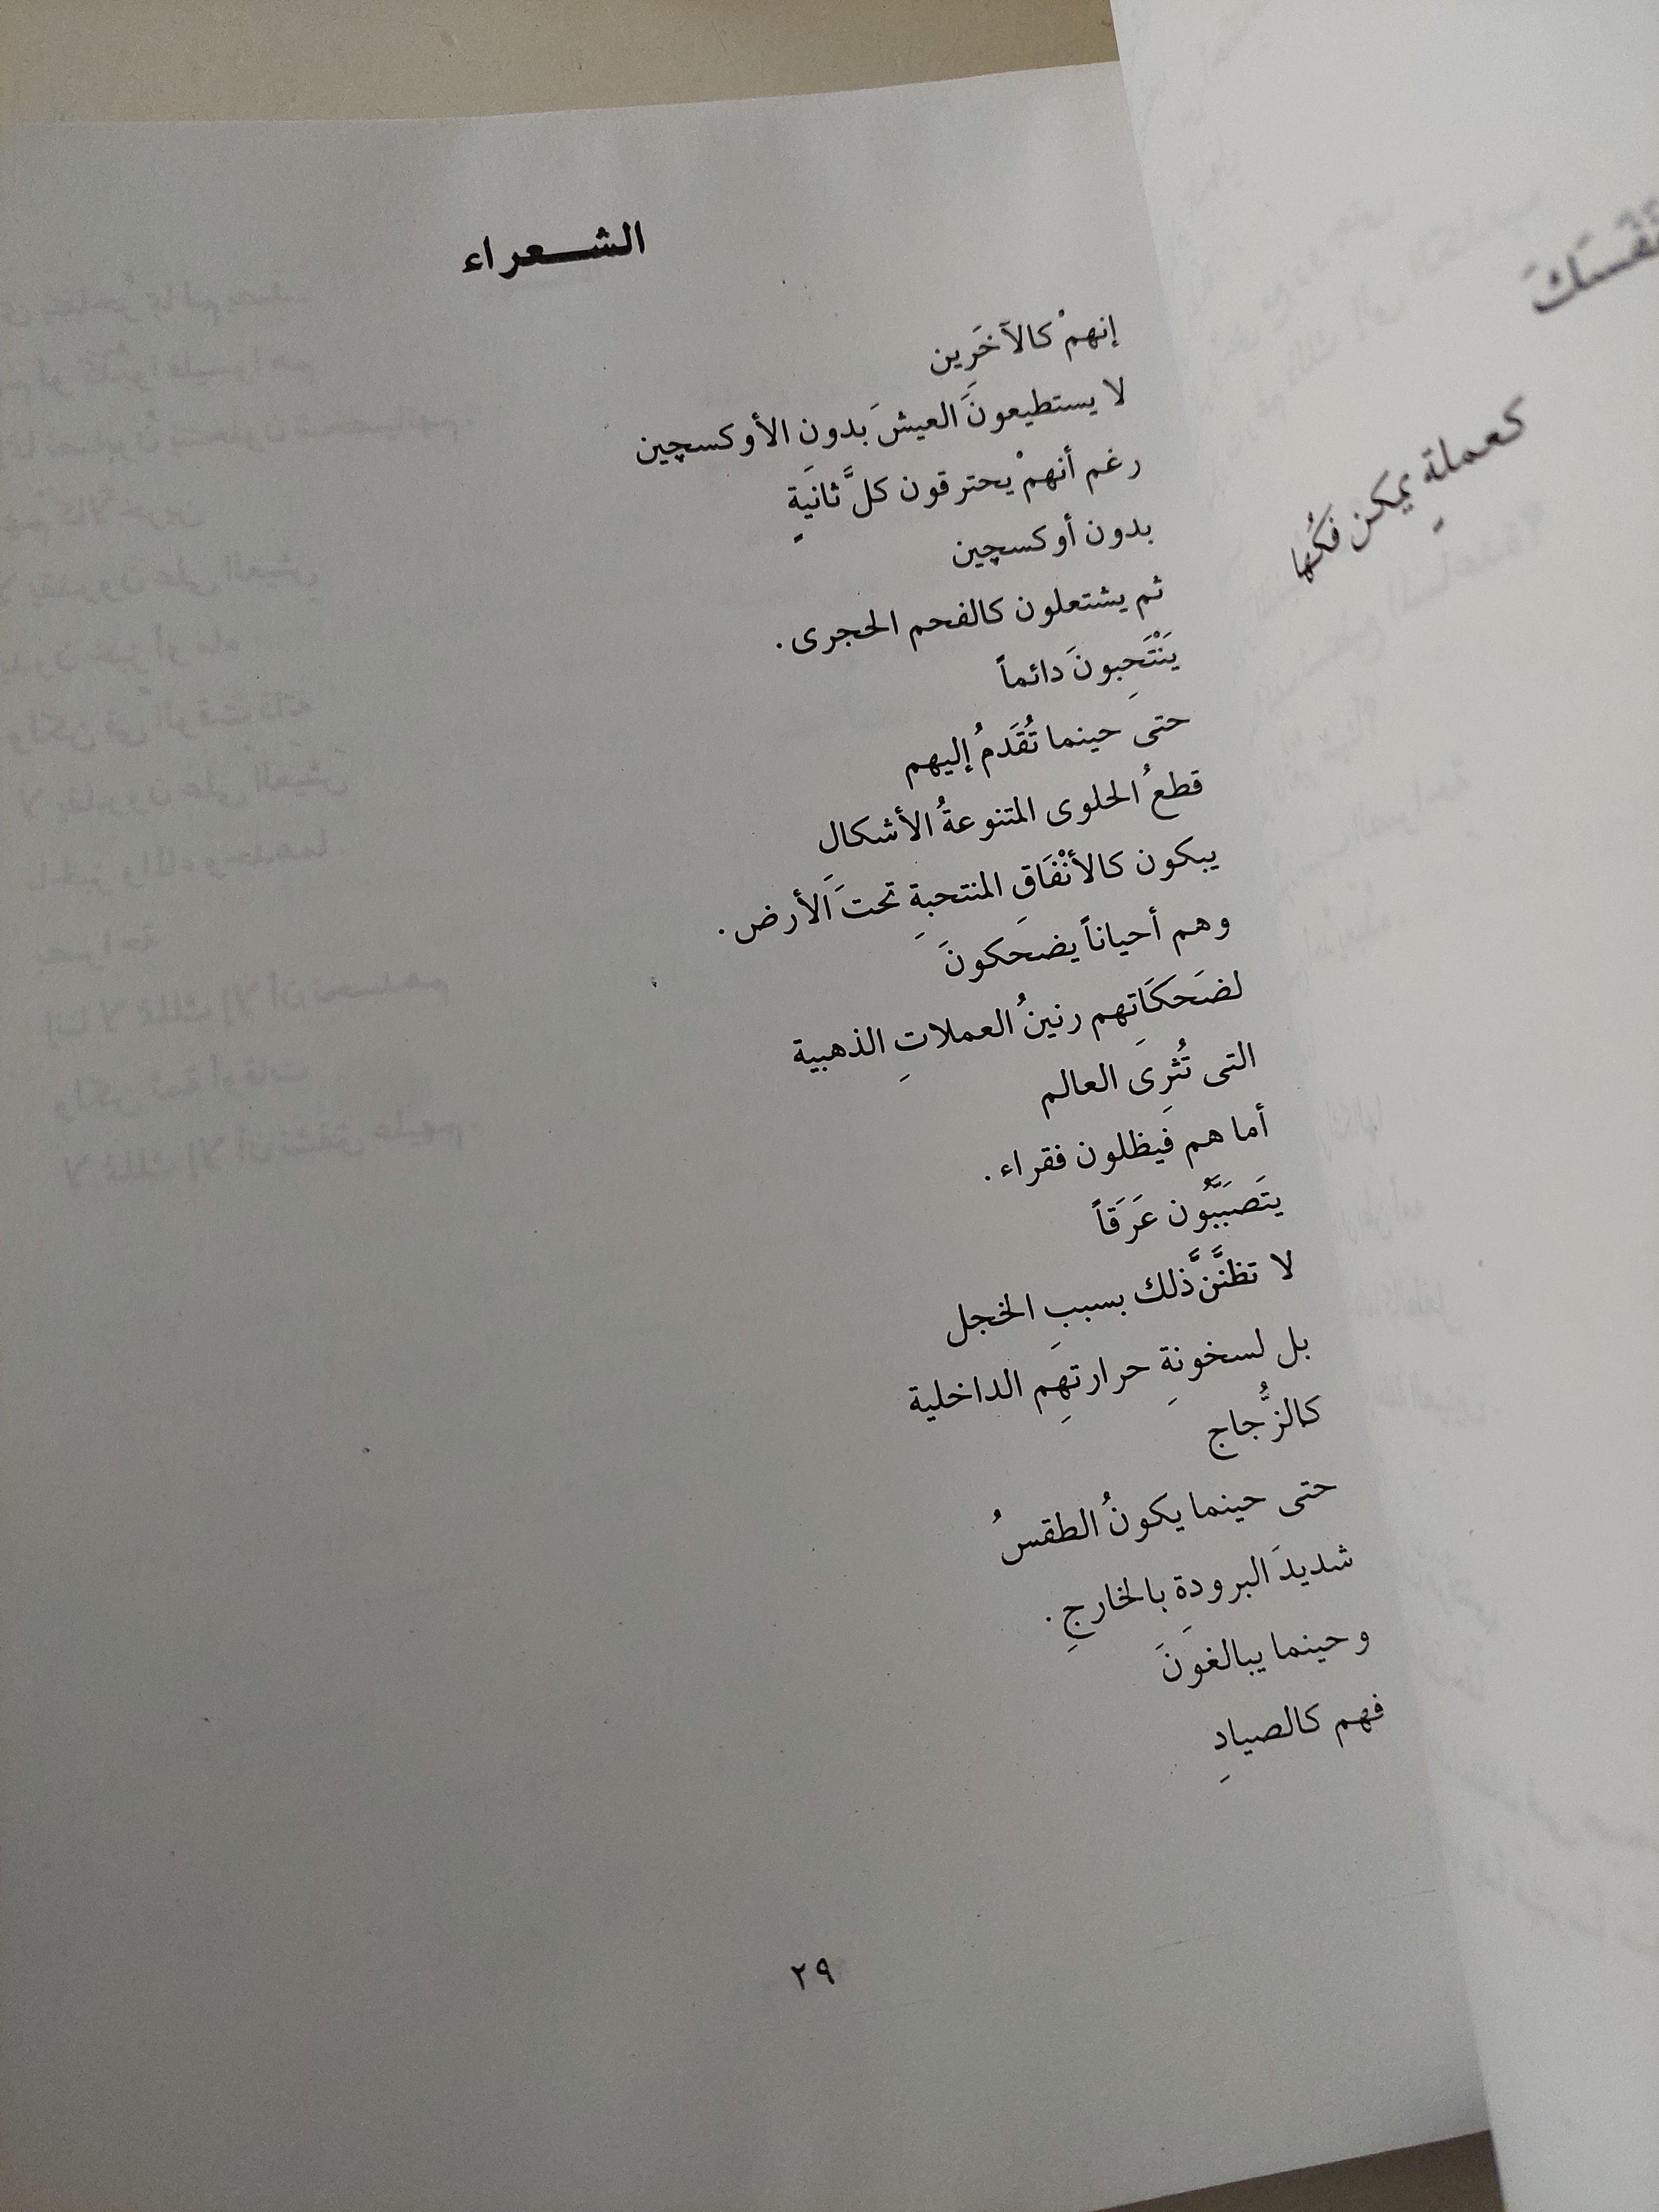 الشعراء
إنهمْ كالآخَرِين
لا يستطيعونَ العيشَ بدون الأوكسچين
رغم أنهمْ يحترقون كلَّ ثانيَةٍ
بدون أوكسچين
ثم يشتعلون كالفحم الحجرى .
يَنْتَحِبونَ دائماً
حتى حينما تُقَدمُ إليهم
قطعُ الحلوى المتنوعةُ الأشكالِ
يبكون كالأنْفَاقِ المنتحبةِ تحتَ الأرض .
وهم أحياناً يضحَكونَ
لضَحَكَاتِهم رنينُ العملاتِ الذهبية
التى تُثرِى العالم
أما هم فيظلون فقراء .
يتَصَبَّبُون عَرَقاً
لا تظنَّنَّ ذلك بسببِ الخجل
بل لسخونةِ حرارتهِم الداخلية
كالزُّجاج
حتى حينما يكونُ الطقسُ
شديدَ البرودة بالخارجِ .
وحينما يبالغونَ
فهم كالصيادِ
٢٩
نفسَكَ
كعملةٍ يمكن فكُها